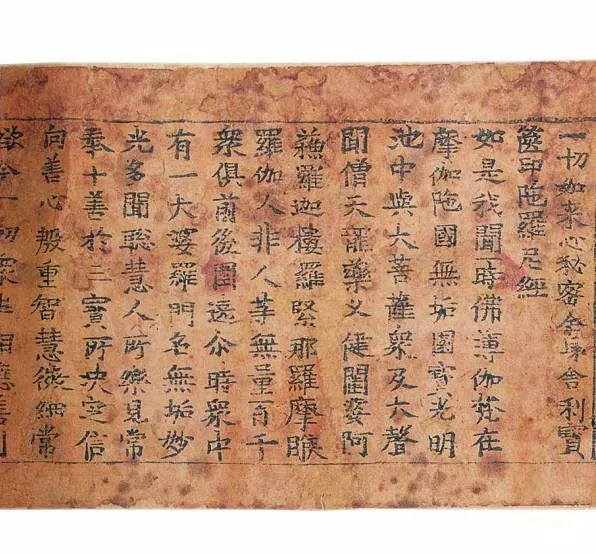 一切如来心秘密全身舍利寶
篋印陀羅尼經
如是我聞一時佛薄伽梵在
摩伽陁國無垢園寳光明
池中與大菩薩衆及大聲
聞僧天龍藥叉健闥婆阿
蘓羅迦樓羅緊那羅摩睺
羅伽人非人等無量百千
衆俱前後圍遶尒時衆中
有一大婆羅門名無垢妙
光多聞聡慧人所樂見常
奉十善於三寶所决定信
向善心殷重智慧微細常
欲令一切衆生相應善利